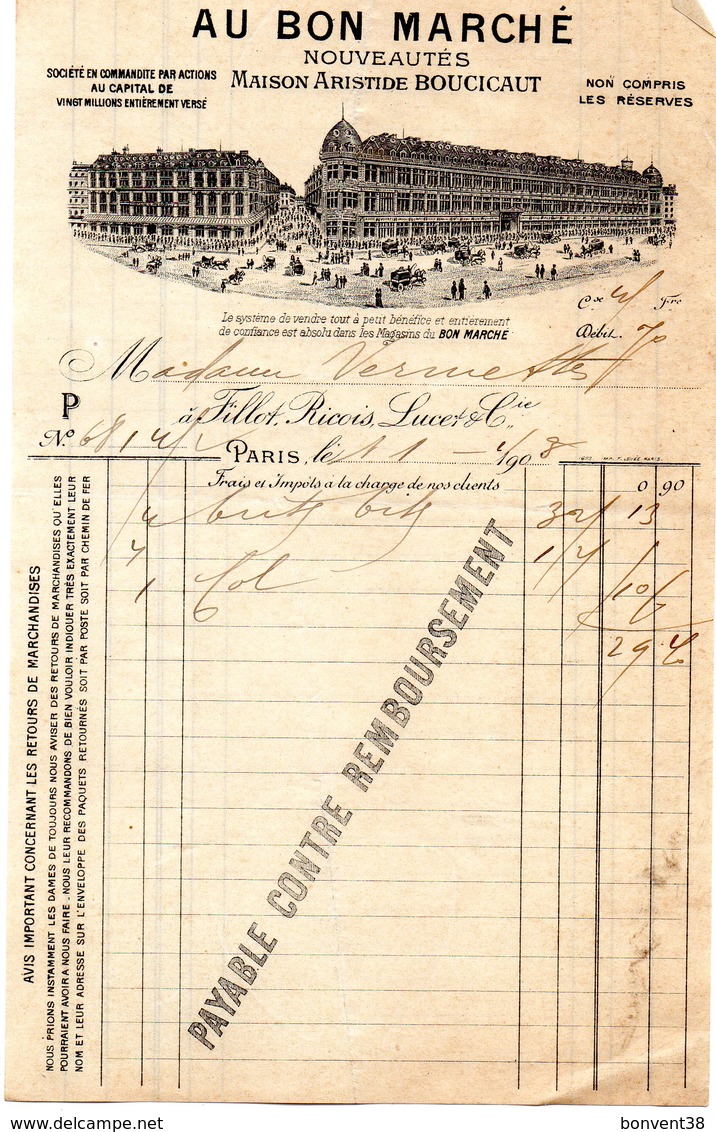 AU BON MARCHÉ
NOUVEAUTÉS
MAISON ARISTIDE BOUCICAUT
SOCIÉTÉ EN COMMANDITE PAR ACTIONS
AU CAPITAL DE
VINGT MILLIONS ENTIÈREMENT VERSÉ
NON COMPRIS
LES RÉSERVES
Le système de vendre tout à petit bénéfice et entièrement
de confiance est absolu dans les Magasins du BON MARCHÉ
Débit. 70
Madame
P
à Fillot, Ricois, Lucet & Cie
No
PARIS, le 11 - 1908
Frais et Impôts à la charge de nos clients 0 90
13
4
1 Col
29
PAYABLE CONTRE REMBOURSEMENT
AVIS IMPORTANT CONCERNANT LES RETOURS DE MARCHANDISES
NOUS PRIONS INSTAMMENT LES DAMES DE TOUJOURS NOUS AVISER DES RETOURS DE MARCHANDISES QU'ELLES
POURRAIENT AVOIR A NOUS FAIRE - NOUS LEUR RECOMMANDONS DE BIEN VOULOIR INDIQUER TRÈS EXACTEMENT LEUR
NOM ET LEUR ADRESSE SUR L'ENVELOPPE DES PAQUETS RETOURNÉS SOIT PAR POSTE SOIT PAR CHEMIN DE FER
delcampe.net
bonvent38